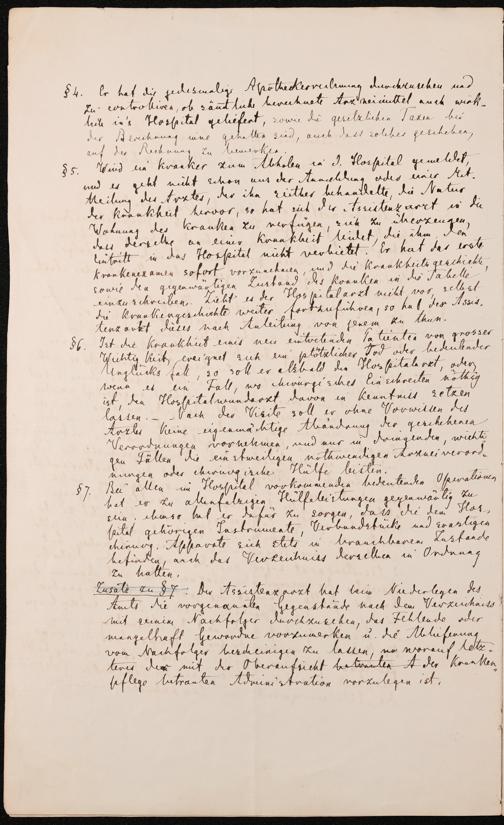 §4. Er hat die jedesmalige Apothekerrechnung durchzusehen und
zu controlliren, ob sämtliche berechnete Arzneimittel auch wirk-
lich in's Hospital geliefert, sowie die gesetzlichen Taxen bei
der Berechnung inne gehalten sind, auch dass solches geschehen,
auf der Rechnung zu bemerken.
§5. Wird ein Kranker zum Abholen in's Hospital gemeldet,
und es geht nicht schon aus der Anmeldung oder einer Mit-
theilung des Arztes, der ihn seither behandelte, die Natur
der Krankheit hervor, so hat sich der Assistenzarzt in die
Wohnung des Kranken zu verfügen, sich zu überzeugen,
dass derselbe an einer Krankheit leidet, die ihm den
Eintritt in das Hospital nicht verbietet. Er hat das erste
Krankenexamen sofort vorzunehmen, und die Krankheitsgeschichte,
sowie den gegenwärtigen Zustand des Kranken in die Tabelle
einzuschreiben. Zieht es der Hospitalarzt nicht vor, selbst
die Krankengeschichte weiter fortzuführen, so hat der Assis-
tenzarzt dieses nach Anleitung von jenem zu thun.
§6. Ist die Krankheit eines neu eintretenden Patienten von grosser
Wichtigkeit, ereignet sich ein plötzlicher Tod oder bedeutender
Unglücksfall, so soll er alsbald den Hospitalarzt, oder,
wenn es ein Fall, wo chirurgisches Einschreiten nöthig
ist, den Hospitalwundarzt davon in Kenntniss setzen
lassen. — Nach der Visite soll er ohne Vorwissen des
Arztes keine eigenmächtige Abänderung der geschehenen
Verordnungen vornehmen, und nur in dringenden, wichti-
gen Fällen die einstweiligen nothwendigen Arzneiverord-
nungen oder chirurgische Hülfe leisten.
§7. Bei allen im Hospital vorkommenden bedeutenden Operationen
hat er zu allenfalsigen Hülfeleistungen gegenwärtig zu
sein. ebenso hat er dafür zu sorgen, dass die dem Hos-
pital gehörigen Instrumente, Verbandstücke und sonstigen
chirurg. Apparate sich stets in brauchbarem Zustande
befinden, auch das Verzeichniss derselben in Ordnung
zu halten.
Zusatz zu §7. Der Assistenzarzt hat beim Niederlegen des
Amts die vorgenannten Gegenstände nach dem Verzeichniss
mit seinem Nachfolger durchzusehen, das Fehlende oder
mangelhaft Gewordne vorzumerken u. die Ablieferung
vom Nachfolger bescheinigen zu lassen, worauf letz-
teres der mit der Oberaufsicht betrauten der Kranken-
pflege betrauten Administration vorzulegen ist.